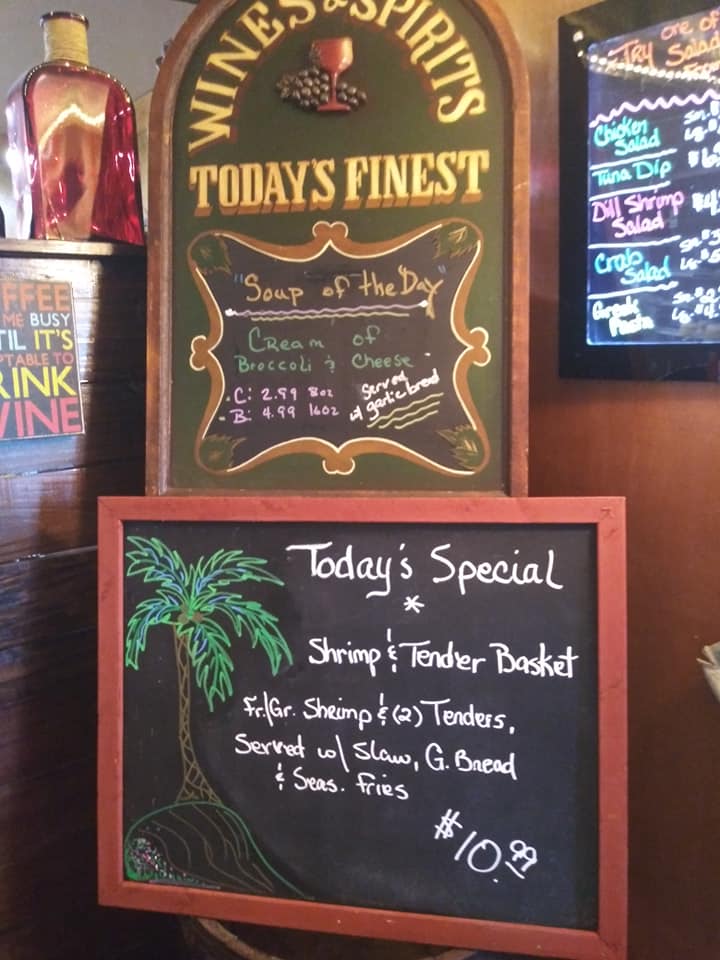 WINES & SPIRITS
TODAY'S FINEST
"Soup of the Day"
Cream of
Broccoli & Cheese
C: 2.99 8oz
B: 4.99 16oz
Served
w/ garlic bread
Today's Special
*
Shrimp & Tender Basket
Fr/Gr. Shrimp & (2) Tenders,
Served w/ Slaw, G. Bread
& Seas. Fries
$10.99
FFEE
ME BUSY
TIL IT'S
PTABLE TO
RINK
WINE
one of
Try Salad
Chicken
Salad
Tuna Dip
Dill Shrimp
Salad
Crab
Salad
Greek
Pasta